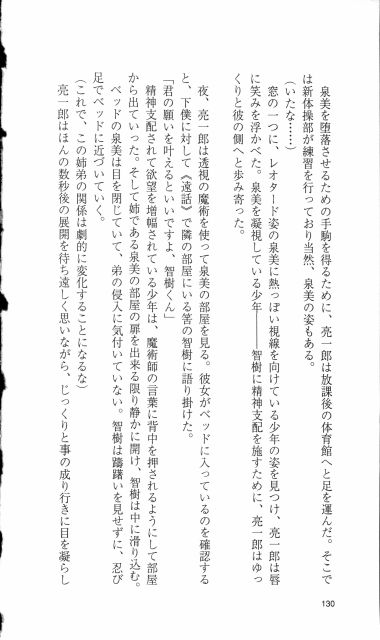 泉美を堕落させるための手駒を得るために、亮一郎は放課後の体育館へと足を運んだ。そこで
は新体操部が練習を行っており当然、泉美の姿もある。
(いたな……)
窓の一つに、レオタード姿の泉美に熱っぽい視線を向けている少年の姿を見つけ、亮一郎は唇
に笑みを浮かべた。泉美を凝視している少年――智樹に精神支配を施すために、亮一郎はゆっ
くりと彼の側へと歩み寄った。
夜、亮一郎は透視の魔術を使って泉美の部屋を見る。彼女がベッドに入っているのを確認する
と、下僕に対して《遠話》で隣の部屋にいる筈の智樹に語り掛けた。
「君の願いを叶えるといいですよ、智樹くん」
精神支配されて欲望を増幅されている少年は、魔術師の言葉に背中を押されるようにして部屋
から出ていった。そして姉である泉美の部屋の扉を出来る限り静かに開け、智樹は中に滑り込む。
ベッドの泉美は目を閉じていて、弟の侵入に気付いていない。智樹は躊躇いを見せずに、忍び
足でベッドに近づいていく。
(これで、この姉弟の関係は劇的に変化することになるな)
亮一郎はほんの数秒後の展開を待ち遠しく思いながら、じっくりと事の成り行きに目を凝らし
130